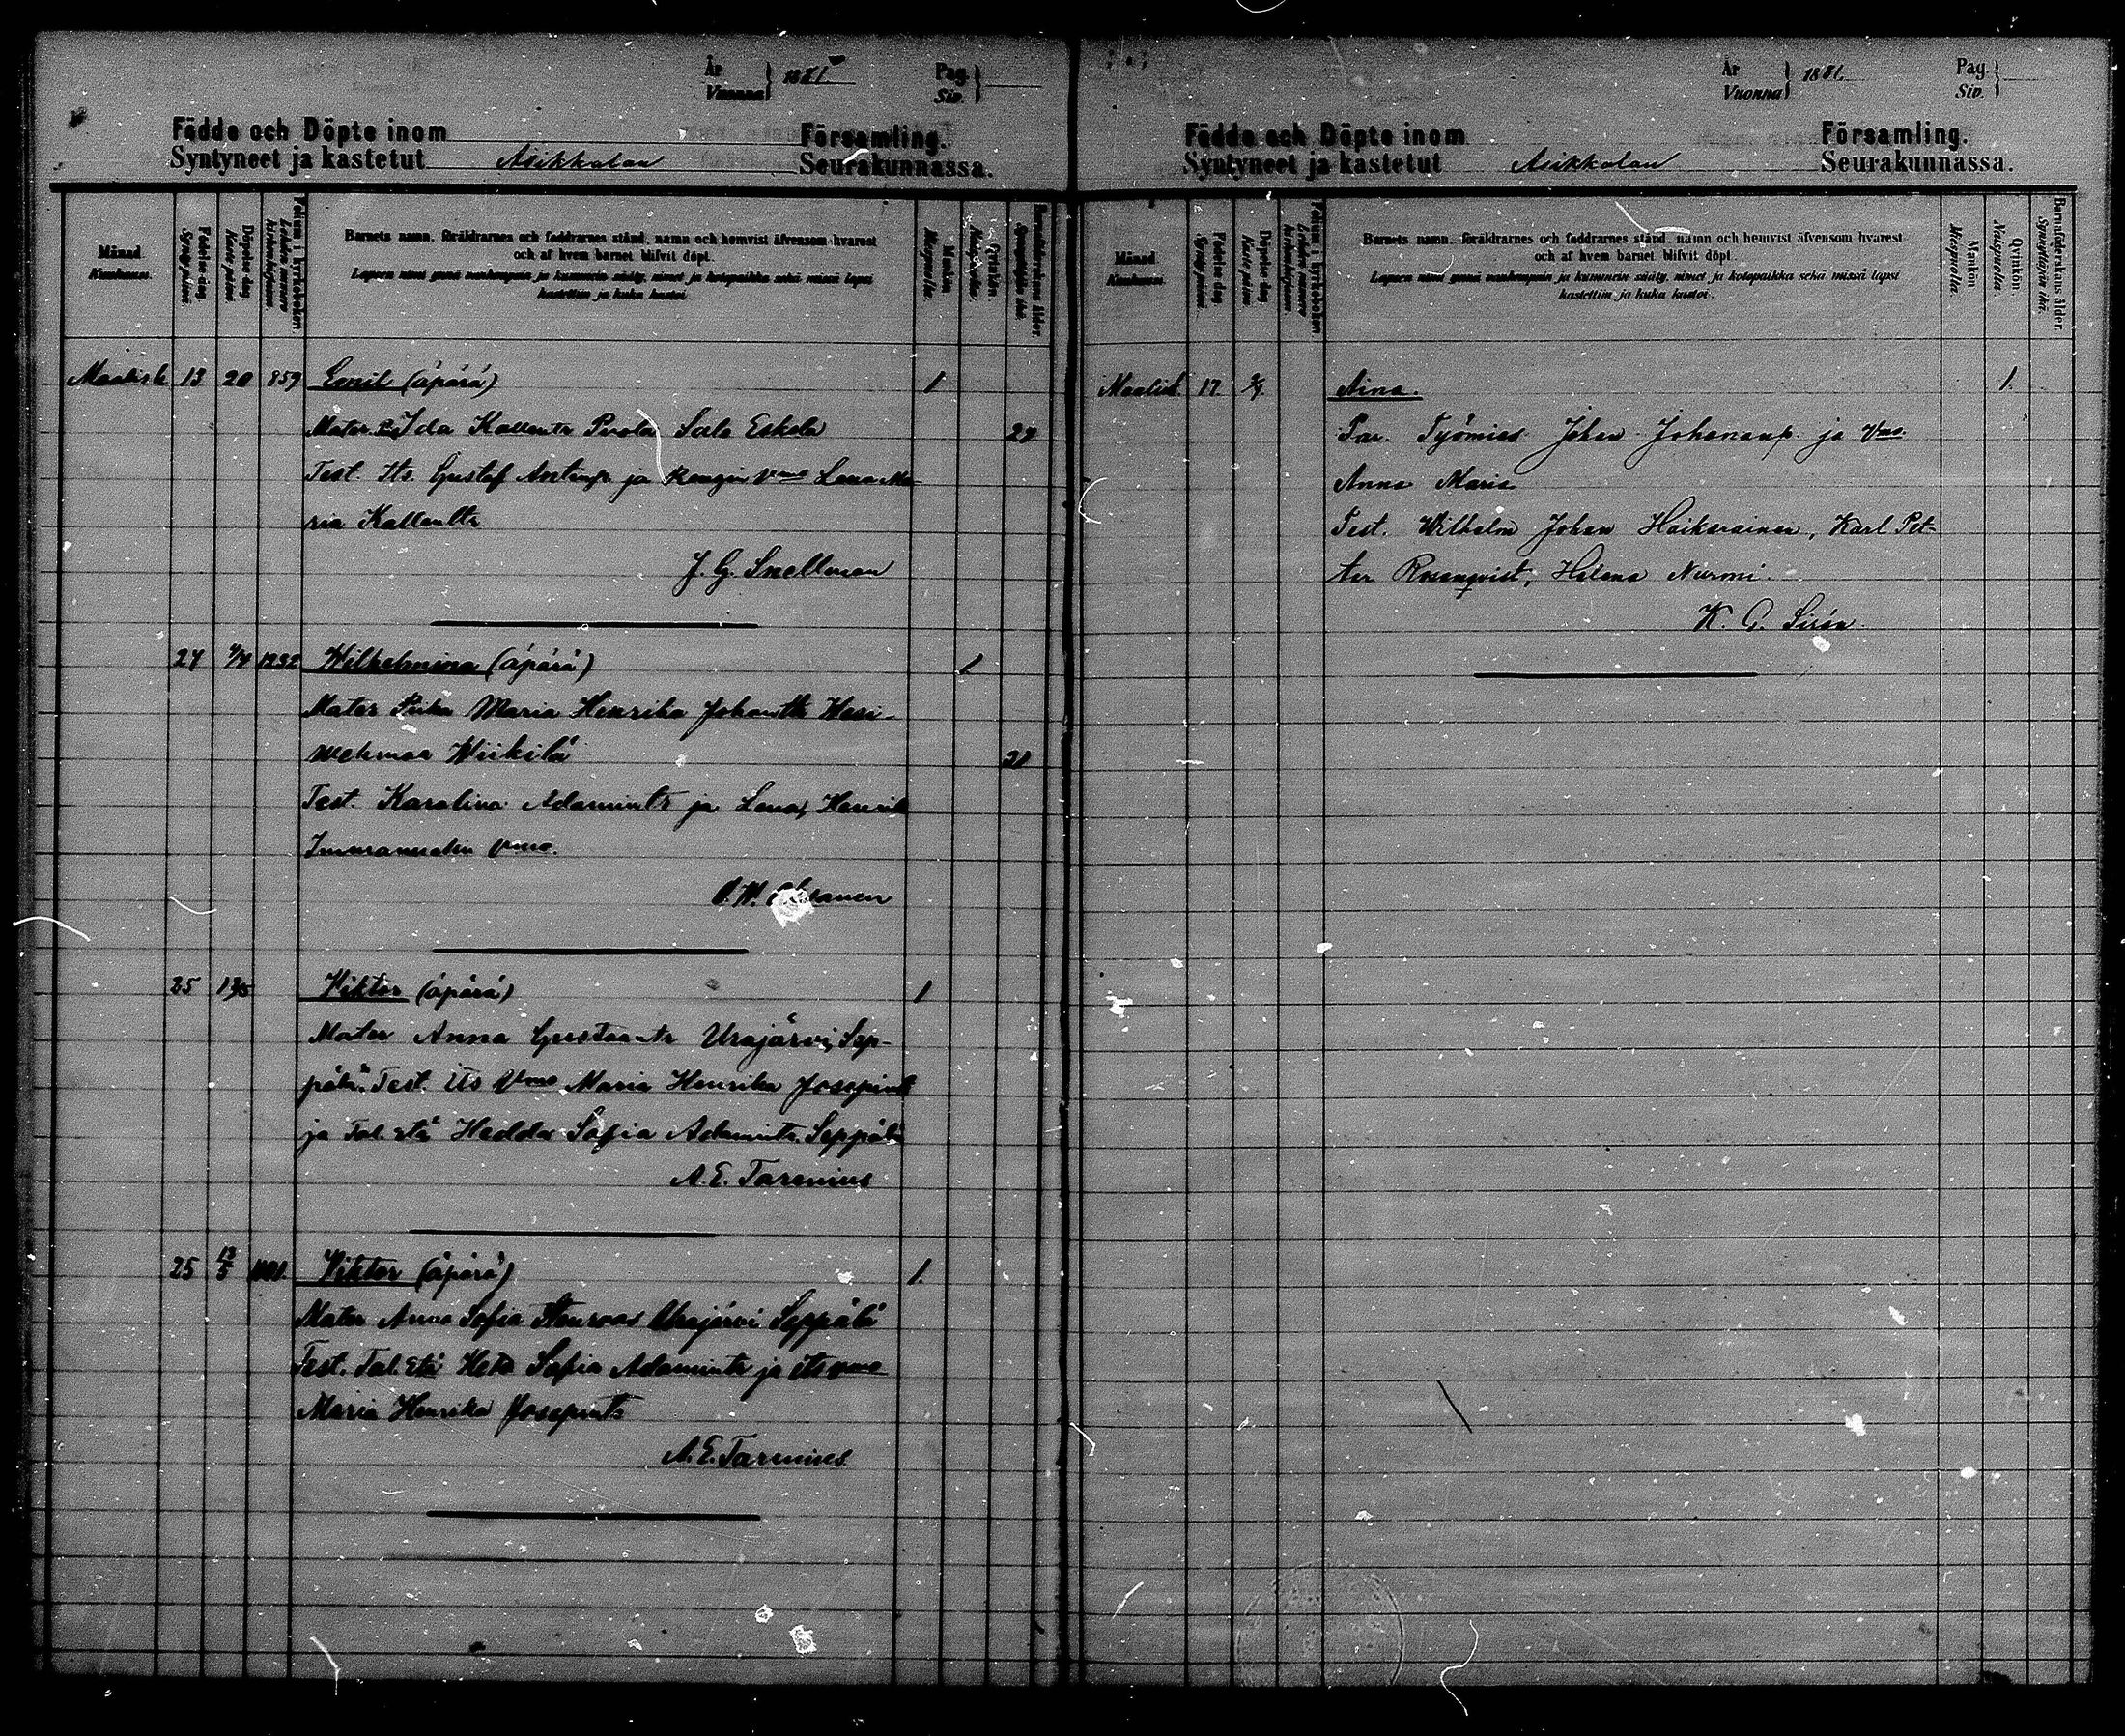 År
Vuonna } 1881
Pag.
Siv. }
Födde och Döpte inom Församling.
Syntyneet ja kastetut Asikkalan Seurakunnassa.
Månad.
Kuukausi.
Födelsedag
Syntymäpäivä
Döpelsedag
Kastepäivä
Folium i kyrkoboken.
Lehden numero kirkonkirjassa.
Barnets namn, föräldrarnes och faddrarnes stånd, namn och hemvist äfvensom hvarest
och af hvem barnet blifvit döpt.
Lapsen nimi ynnä vanhempain ja kummein sääty, nimet ja kotopaikka sekä missä lapsi
kastettiin ja kuka kastoi.
Mankön
Miespuolia.
Qvinkön
Naispuolia.
Barnföderskans ålder.
Synnyttäjän ikä.
Maalisk 13 20 859 Emil (äpärä) 1
Mater Ida Kallentr Eskola 29
Test. Its. Gustaf Antinp. ja Rengin Vmo Lena Ma-
ria Kallentr.
J. G. Snellman
24 1232 Wilhelmina (äpärä) 1
Mater Piika Maria Henrika Johantr Wesi-
wehmaa Wiikilä 21
Test. Karolina Adamintr ja Lena Henrik
Vmo.
25 13/5 Viktor (äpärä) 1
Mater Anna Gustaantr Urajärvi Sep-
pälä. Test. Its Vmo Maria Henrika Josepintr
ja Tal. etä Hedda Sofia Adamintr Seppälä
A. E. Tarenius
25 13/5 Viktor (äpärä) 1.
Mater Anna Sofia Stenroos Urajärvi Seppälä
Test. Tal. etä Heta Sofia Adamintr ja its vmo
Maria Henrika Josepintr
A. E. Tarenius.
År
Vuonna } 1881.
Pag.
Siv. }
Födde och Döpte inom Församling.
Syntyneet ja kastetut Asikkalan Seurakunnassa.
Månad
Kuukausi.
Födelsedag
Syntymäpäivä.
Döpelsedag
Kastepäivä.
Folium i kyrkoboken.
Lehden numero kirkonkirjassa.
Barnets namn, föräldrarnes och faddrarnes stånd, namn och hemvist äfvensom hvarest
och af hvem barnet blifvit döpt.
Lapsen nimi ynnä vanhempain ja kummein sääty, nimet ja kotopaikka sekä missä lapsi
kastettiin ja kuka kastoi.
Mankön
Miespuolia.
Qvinkön.
Naispuolia.
Barnföderskans ålder.
Synnyttäjän ikä.
Maalisk 17. Aina. 1.
Par. Työmies Johan Johananp. ja Vmo.
Anna Maria
Test. Wilhelm Johan Haikarainen, Karl Pet-
ter Rosenqvist, Helena Nurmi.
K. G. Sirén.